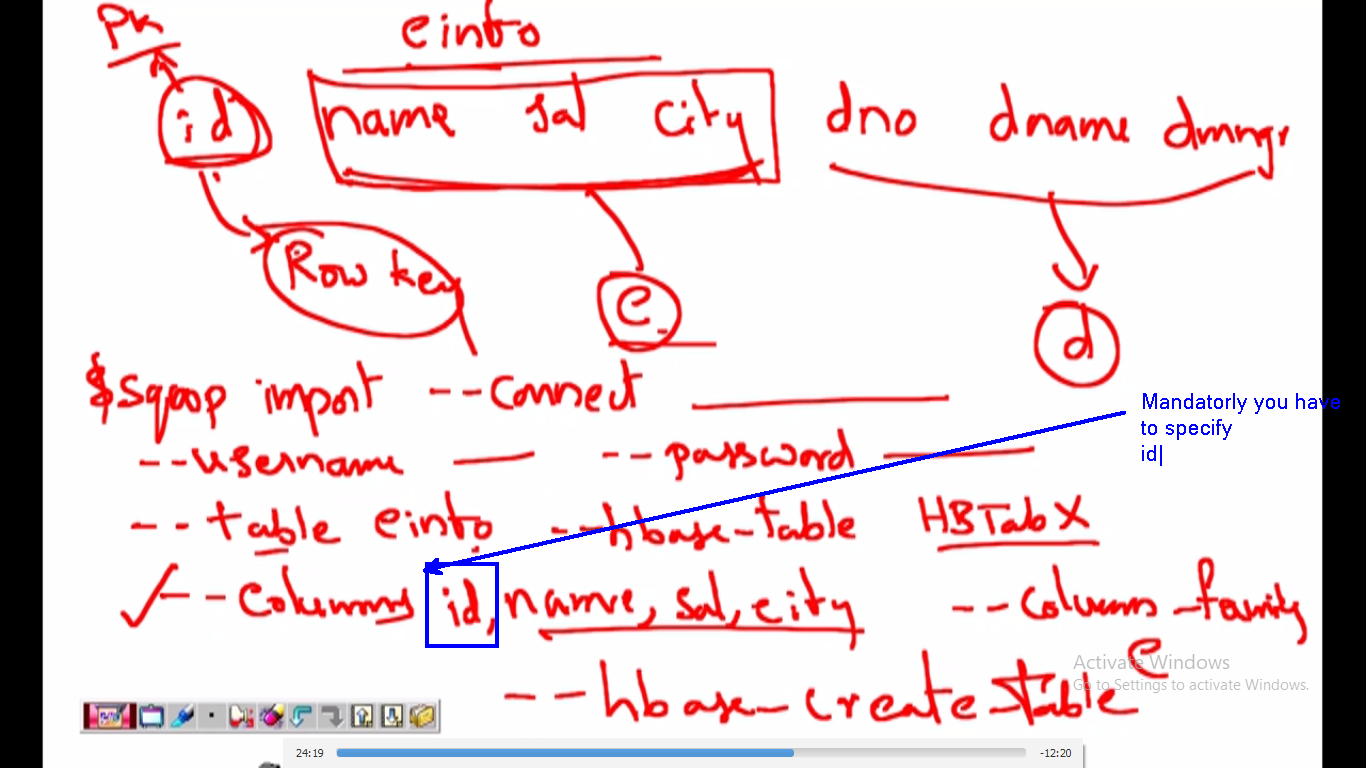 PK
einfo
id name sal city dno dname dmngr
Row key
e
d
$sqoop import --connect
--username --password
--table einfo --hbase-table HBTabX
--columns id, name, sal, city --column-family
e
--hbase-create-table
Mandatorly you have
to specify
id
Activate Windows
Go to Settings to activate Windows.
24:19 -12:20